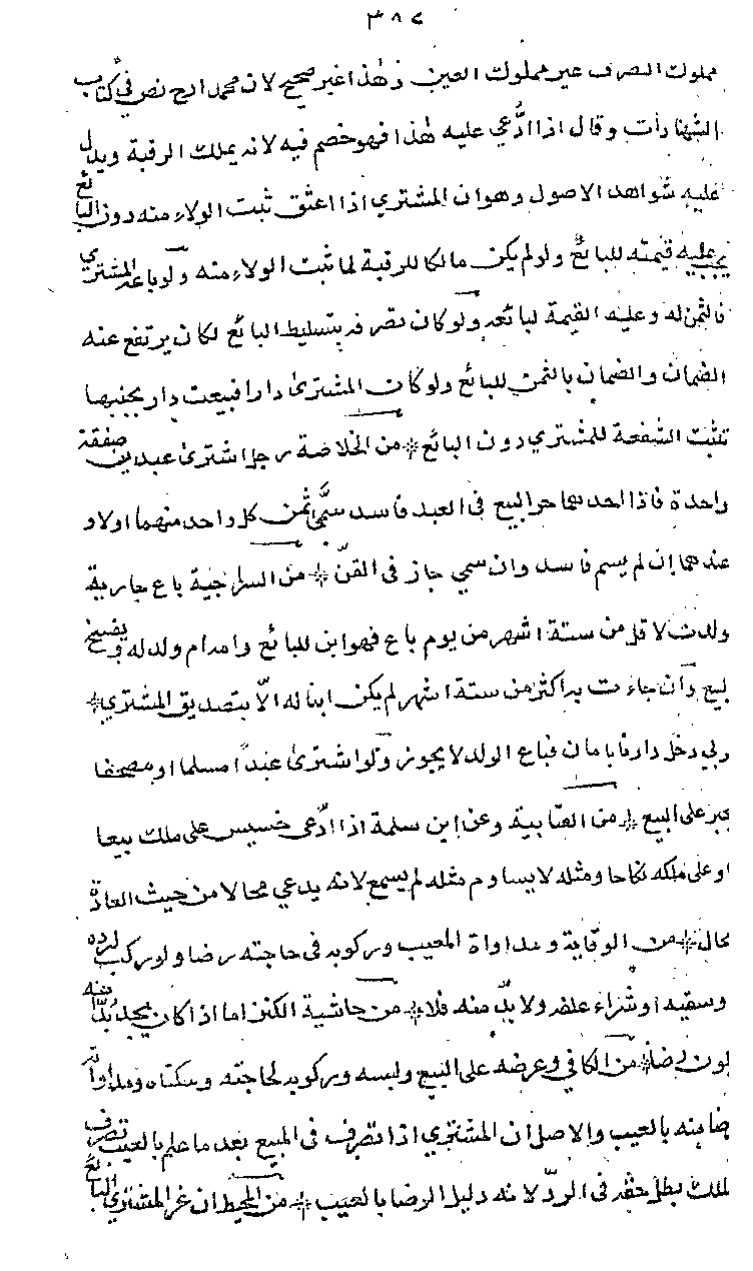 ٣٨٧
مملوك التصرف غير مملوك العين وهذا غير صحيح لان محمد الرح نص في كتاب
الشهادات وقال اذا ادّعي عليه هٰذا فهو خصم فيه لانه يملك الرقبة ويدل
عليه شواهد الاصول وهو ان المشتري اذا اعتق ثبت الولاء منه دون البائع
يجب عليه قيمته للبائع ولو لم يكن مالكا للرقبة لما ثبت الولاء منه ولو باعه المشتري
فالثمن له وعليه القيمة لبائعه ولو كان تصرفه بتسليط البائع لكان يرتفع عنه
الضمان والضمان بالثمن للبائع ولو كان المشترىٰ دارا فبيعت دار بجنبها
تثبت الشفعة للمشتري دون البائع * من الخلاصة رجل اشترىٰ عبدين صفقة
واحدة فاذا احدهما حر البيع فى العبد فاسد سمّي ثمن كل واحد منهما اولا و
عندهما ان لم يسم فاسد وان سمي جاز فى القنّ * من السراجية باع جارية
ولدت لاقل من ستة اشهر من يوم باع فهو ابن للبائع وام ولد له ويفسخ
لبيع وان جاءت به اكثر من ستة اشهر لم يكن ابنا له الّا بتصديق المشتري *
ربي دخل دارنا بامان فباع الولد لا يجوز ولو اشترىٰ عبداً مسلما او مصحفا
يجبر على البيع * من العتابية وعن ابن سلمة اذا ادّعى خسيس على ملك بيعا
او على ملكه نكاحا ومثله لا يساوم مثله لم يسمع لانه يدعي محالا من حيث العادة
بحال * من الوقاية ومداواة المعيب وركوبه فى حاجته رضا ولو ركب لرده
وسقيه او شراء علفه ولا بدّ منه فلا * من حاشية الكنز اما اذا كان يجد بدّا منه
يكون رضا * من الكافي وعرضه على البيع ولبسه وركوبه لحاجته وسكناه ومداواته
رضا منه بالعيب والاصل ان المشتري اذا تصرف فى المبيع بعد ما علم بالعيب تصرف
لملاك بطل حقه فى الردّ لانه دليل الرضا بالعيب * من المحيط ان غر المشتري البائع